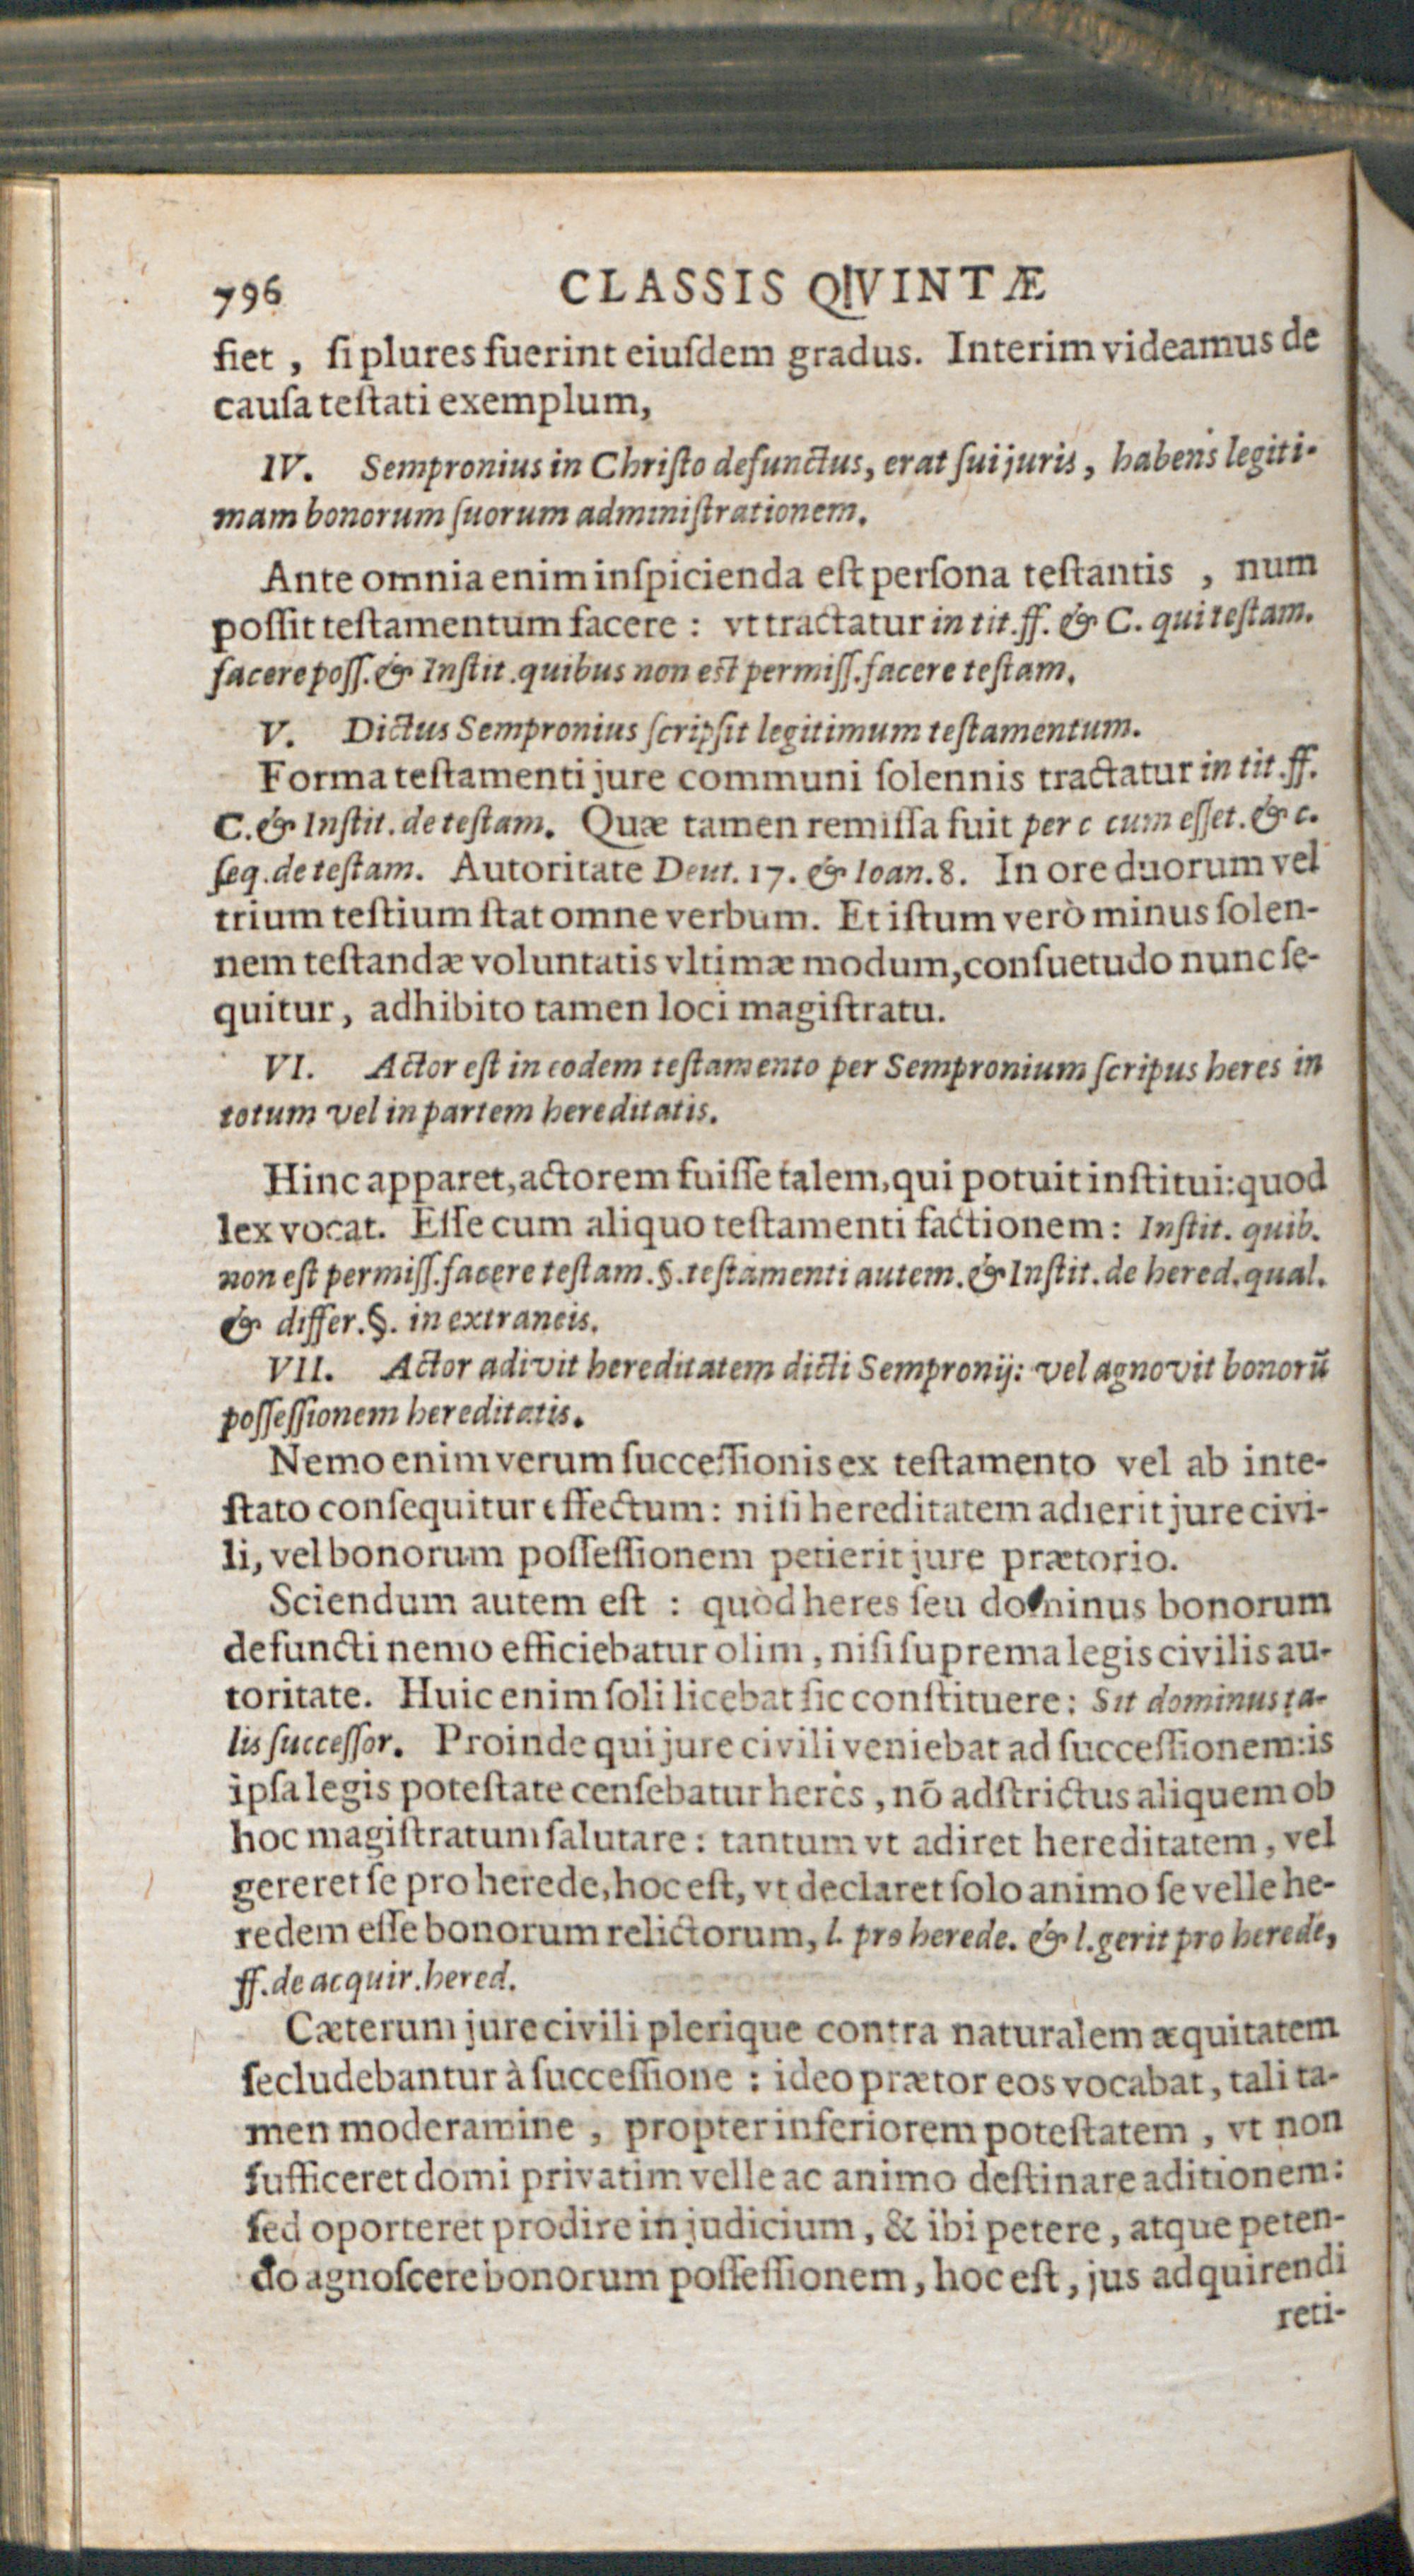 796 CLASSIS QVINTÆ
fiet, ſi plures fuerint eiuſdem gradus. Interim videamus de
cauſa teſtati exemplum,
IV. Sempronius in Chriſto defunctus, erat ſui juris, habens legiti-
mam bonorum ſuorum adminiſtrationem.
Ante omnia enim inſpicienda eſt perſona teſtantis, num
poſſit teſtamentum facere: vt tractatur in tit. ff. & C. qui teſtam.
facere poſſ. & Inſtit. quibus non eſt permiſſ. facere teſtam.
V. Dictus Sempronius ſcripſit legitimum teſtamentum.
Forma teſtamenti jure communi ſolennis tractatur in tit. ff.
C. & Inſtit. de teſtam. Quæ tamen remiſſa fuit per c cum eſſet. & c.
ſeq. de teſtam. Autoritate Deut. 17. & Ioan. 8. In ore duorum vel
trium teſtium ſtat omne verbum. Et iſtum verò minus ſolen-
nem teſtandæ voluntatis vltimæ modum, conſuetudo nunc ſe-
quitur, adhibito tamen loci magiſtratu.
VI. Actor eſt in eodem teſtamento per Sempronium ſcripus heres in
totum vel in partem hereditatis.
Hinc apparet, actorem fuiſſe talem, qui potuit inſtitui: quod
lex vocat. Eſſe cum aliquo teſtamenti factionem: Inſtit. quib.
non eſt permiſſ. facere teſtam. §. teſtamenti autem. & Inſtit. de hered. qual.
& differ. §. in extraneis.
VII. Actor adivit hereditatem dicti Sempronij: vel agnovit bonorū
poſſeſſionem hereditatis.
Nemo enim verum ſucceſſionis ex teſtamento vel ab inte-
ſtato conſequitur effectum: niſi hereditatem adierit jure civi-
li, vel bonorum poſſeſſionem petierit jure prætorio.
Sciendum autem eſt: quòd heres ſeu dominus bonorum
defuncti nemo efficiebatur olim, niſi ſuprema legis civilis au-
toritate. Huic enim ſoli licebat ſic conſtituere: Sit dominus ta-
lis ſucceſſor. Proinde qui jure civili veniebat ad ſucceſſionem: is
ipſa legis poteſtate cenſebatur heres, nō adſtrictus aliquem ob
hoc magiſtratum ſalutare: tantum vt adiret hereditatem, vel
gereret ſe pro herede, hoc eſt, vt declaret ſolo animo ſe velle he-
redem eſſe bonorum relictorum, l. pro herede. & l. gerit pro herede,
ff. de acquir. hered.
Cæterum jure civili plerique contra naturalem æquitatem
ſecludebantur à ſucceſſione: ideo prætor eos vocabat, tali ta-
men moderamine, propter inferiorem poteſtatem, vt non
ſufficeret domi privatim velle ac animo deſtinare aditionem:
ſed oporteret prodire in judicium, & ibi petere, atque peten-
do agnoſcere bonorum poſſeſſionem, hoc eſt, jus adquirendi
reti-